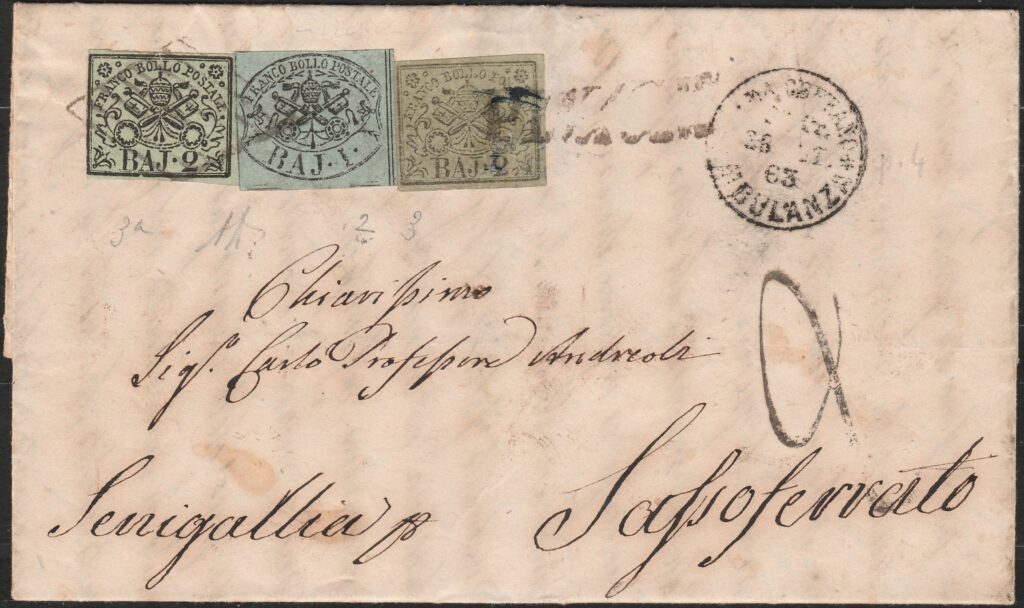 FRANCO BOLLO POSTALE
BAJ·2
FRANCO BOLLO POSTALE
BAJ·1·
FRANCO BOLLO POSTALE
BAJ·2
63
3a
2
3
p. 4
Chiarissimo
Sig.r Carlo Professore Andreoli
Senigallia p
Sassoferrato